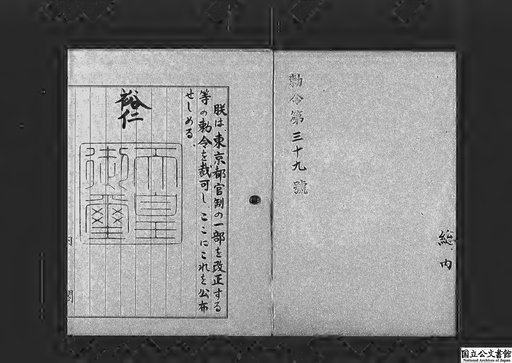 勅令第三十九號
総内
朕は、東京都官制の一部を改正する
等の勅令を裁可し、ここにこれを公布
せしめる。
裕仁
天皇
御璽
内閣
国立公文書館
National Archives of Japan